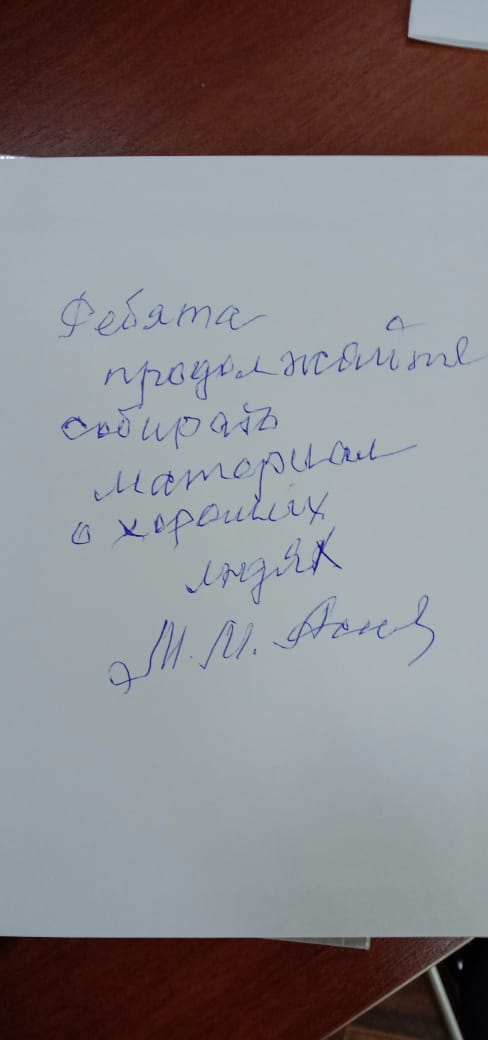 Ребята
продолжайте
собирать
материал
о хороших
людях
М.М.